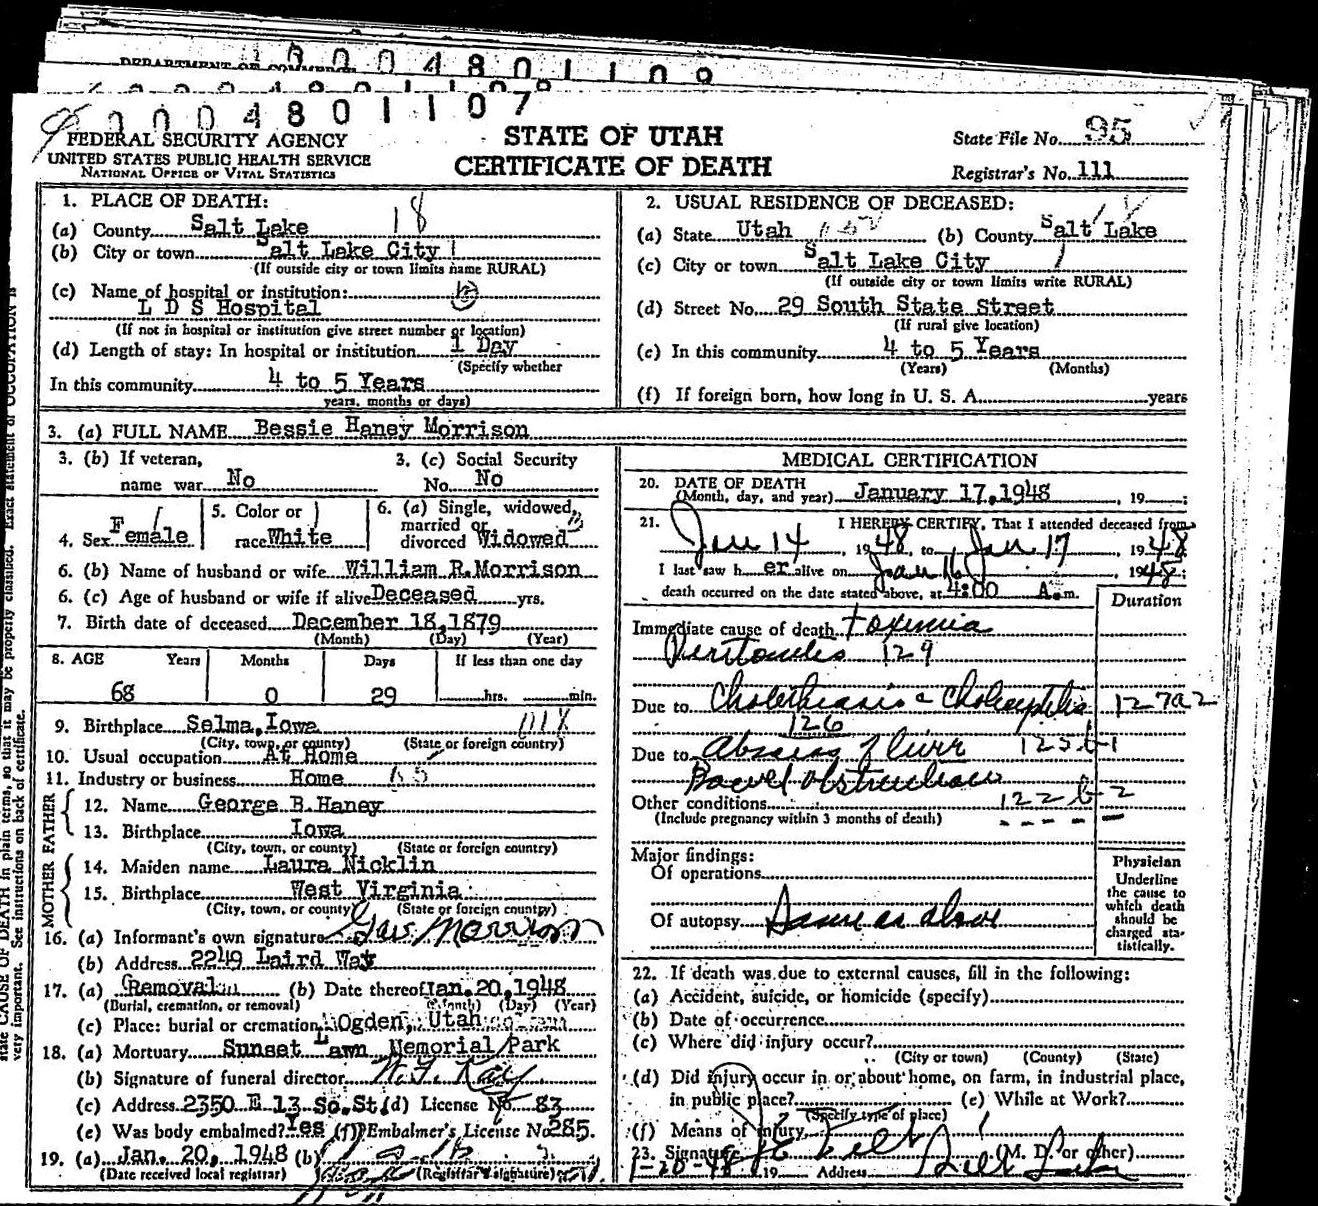 DEPARTMENT OF COMMERCE
0 0 0 4 8 0 1 1 0 9
0 0 0 4 8 0 1 1 0 7
FEDERAL SECURITY AGENCY
UNITED STATES PUBLIC HEALTH SERVICE
NATIONAL OFFICE OF VITAL STATISTICS
STATE OF UTAH
CERTIFICATE OF DEATH
State File No. 95
Registrar's No. 111
1. PLACE OF DEATH: 18
(a) County Salt Lake
(b) City or town Salt Lake City 1
(If outside city or town limits name RURAL)
(c) Name of hospital or institution:
L D S Hospital
(If not in hospital or institution give street number or location)
(d) Length of stay: In hospital or institution 1 Day
(Specify whether
In this community 4 to 5 Years
years, months or days)
2. USUAL RESIDENCE OF DECEASED:
(a) State Utah (b) County Salt Lake
(c) City or town Salt Lake City 1
(If outside city or town limits write RURAL)
(d) Street No. 29 South State Street
(If rural give location)
(e) In this community 4 to 5 Years
(Years) (Months)
(f) If foreign born, how long in U. S. A. years
3. (a) FULL NAME Bessie Haney Morrison
3. (b) If veteran,
name war No
3. (c) Social Security
No. No
4. Sex Female
5. Color or
race White
6. (a) Single, widowed,
married or
divorced Widowed
6. (b) Name of husband or wife William R. Morrison
6. (c) Age of husband or wife if alive Deceased yrs.
7. Birth date of deceased December 18, 1879
(Month) (Day) (Year)
8. AGE Years Months Days If less than one day
68 0 29 hrs. min.
9. Birthplace Selma, Iowa
(City, town, or county) (State or foreign country)
10. Usual occupation At Home
11. Industry or business Home
FATHER
12. Name George B. Haney
13. Birthplace Iowa
(City, town, or county) (State or foreign country)
MOTHER
14. Maiden name Laura Nicklin
15. Birthplace West Virginia
(City, town, or county) (State or foreign country)
16. (a) Informant's own signature Morrison
(b) Address 2249 Laird Way
17. (a) Removal (b) Date thereof Jan. 20, 1948
(Burial, cremation, or removal) (Month) (Day) (Year)
(c) Place: burial or cremation Ogden, Utah
18. (a) Mortuary Sunset Lawn Memorial Park
(b) Signature of funeral director
(c) Address 2350 E 13 So. St. (d) License No. 83
(e) Was body embalmed? Yes (f) Embalmer's License No. 285.
19. (a) Jan. 20, 1948 (b)
(Date received local registrar) (Registrar's signature)
MEDICAL CERTIFICATION
20. DATE OF DEATH
(Month, day, and year) January 17, 1948 , 19 ;
21. I HEREBY CERTIFY, That I attended deceased from
Jan 14 , 1948, to Jan 17 , 1948
I last saw her alive on Jan 16 , 1948;
death occurred on the date stated above, at 4:00 A. m.
Duration
Immediate cause of death toxemia
Peritonitis 129
Due to Cholelithiasis c Cholecystitis 127a2
126
Due to Abscess of liver 125b-1
Bowel obstruction
Other conditions 122b-2
(Include pregnancy within 3 months of death)
Major findings:
Of operations
Of autopsy Same as above
Physician
Underline
the cause to
which death
should be
charged sta-
tistically.
22. If death was due to external causes, fill in the following:
(a) Accident, suicide, or homicide (specify)
(b) Date of occurrence
(c) Where did injury occur?
(City or town) (County) (State)
(d) Did injury occur in or about home, on farm, in industrial place,
in public place? (e) While at Work?
(Specify type of place)
(f) Means of injury
23. Signature (M. D. or other)
1-20-48 19 Address
state CAUSE OF DEATH in plain terms, so that it may be properly classified. Exact statement of OCCUPATION is
very important. See instructions on back of certificate.